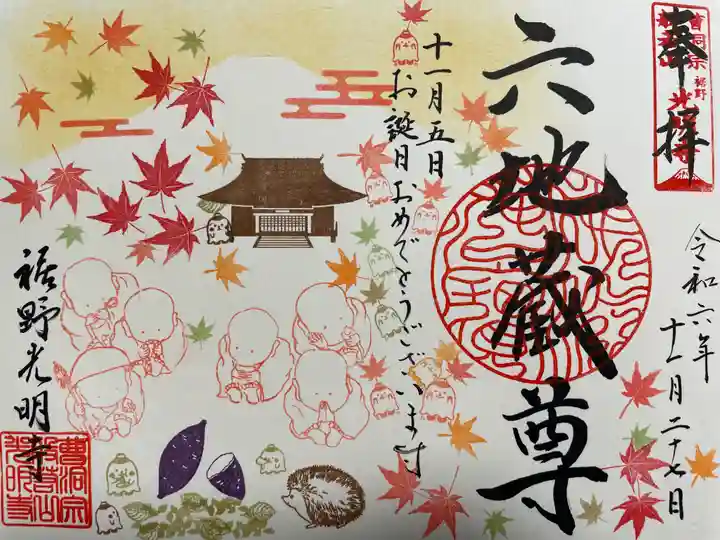 奉拝
曹洞宗
裾野
六地蔵尊
令和六年
十一月二十七日
十一月五日
お誕生日おめでとうございます
裾野光明寺
曹洞宗
光明寺